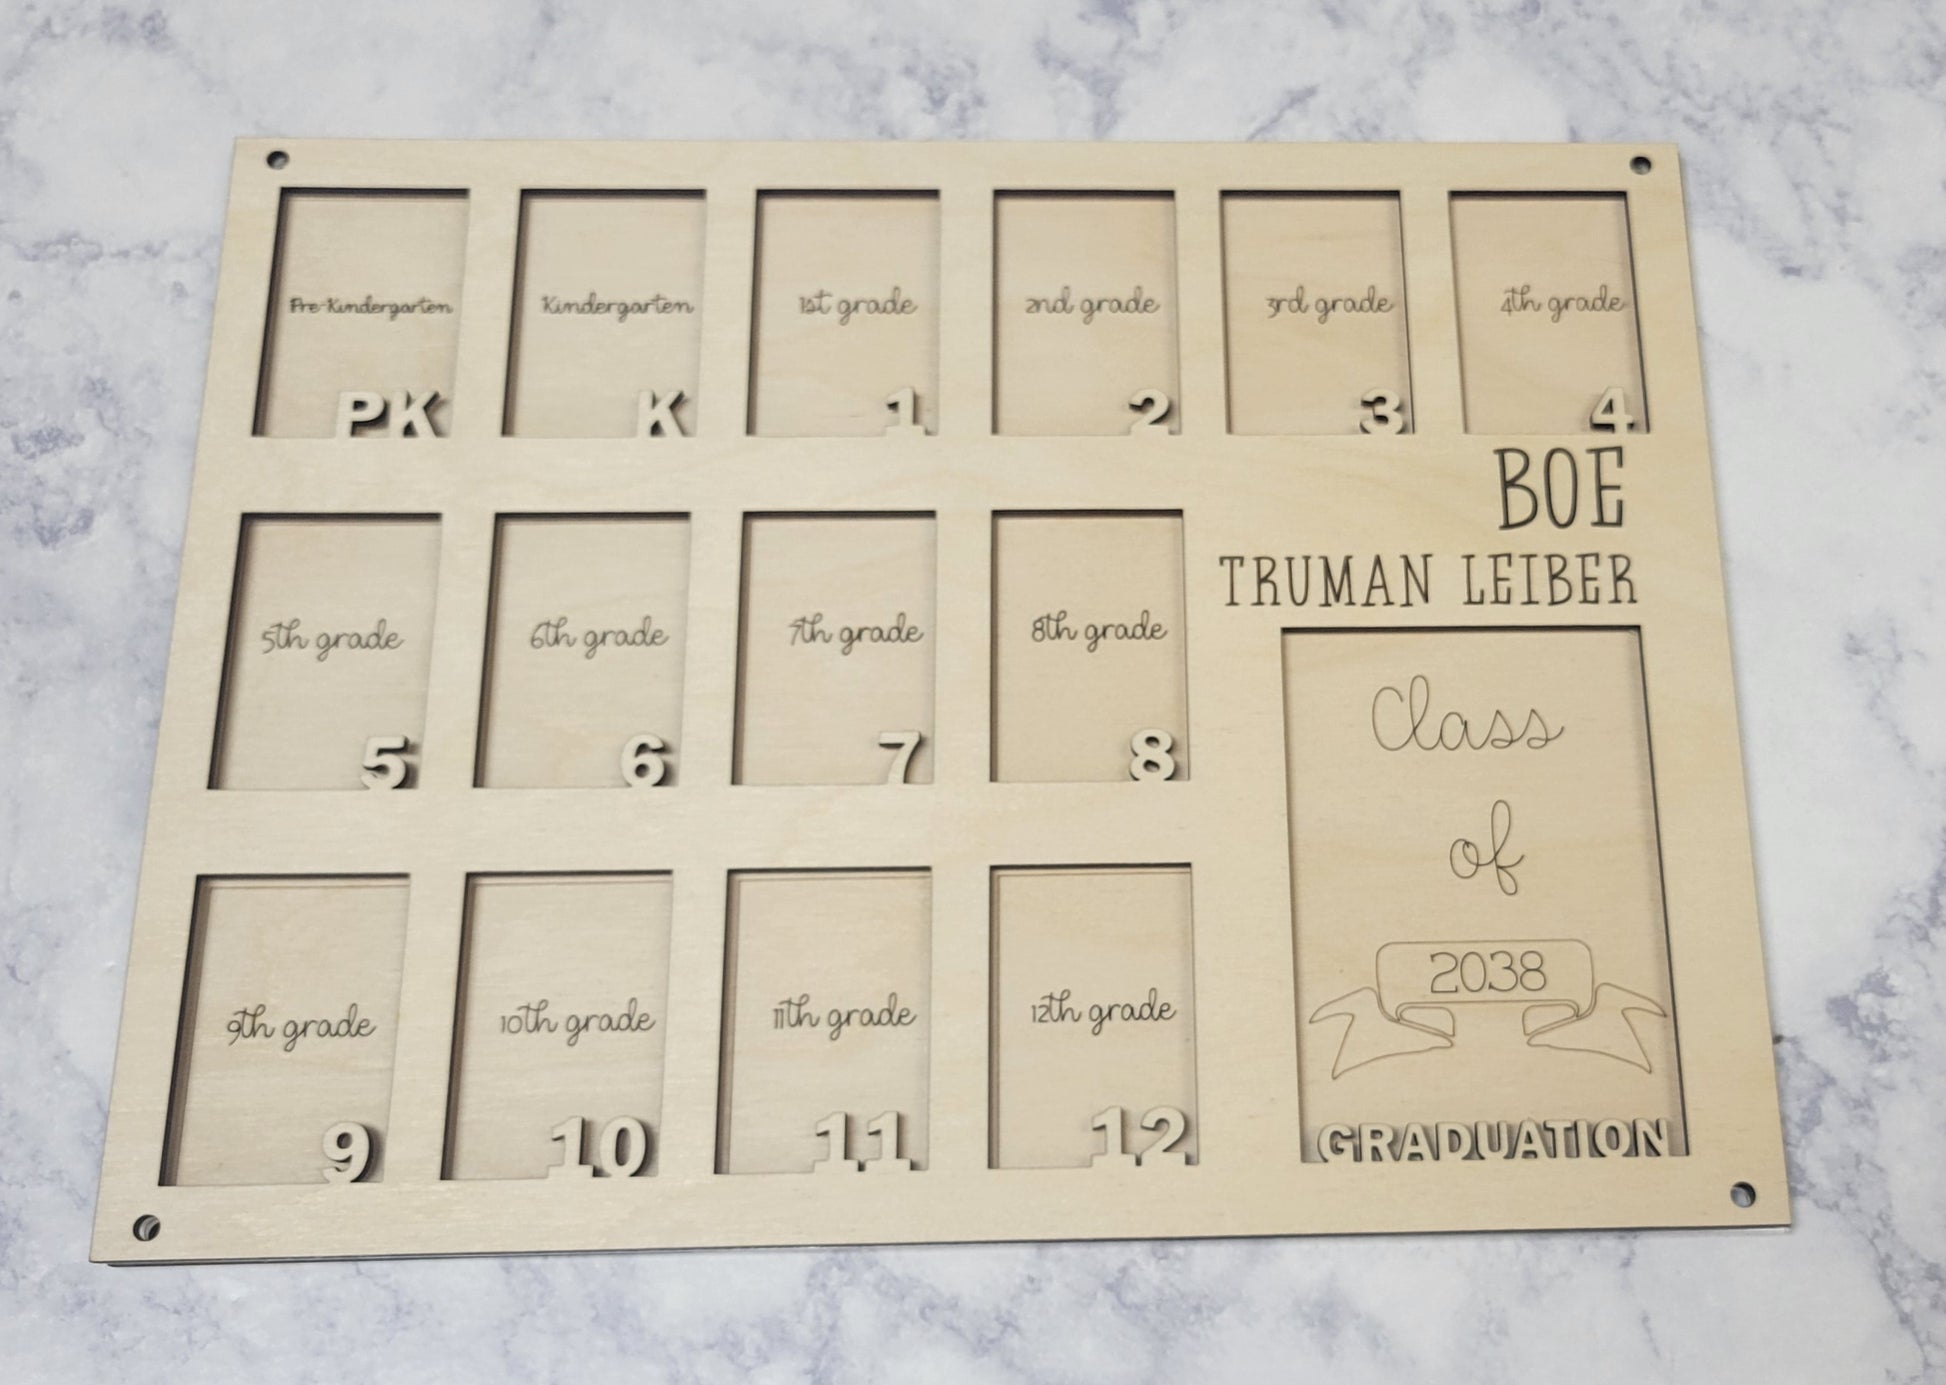 Pre-Kindergarten
PK
Kindergarten
K
1st grade
1
2nd grade
2
3rd grade
3
4th grade
4
BOE
TRUMAN LEIBER
5th grade
5
6th grade
6
7th grade
7
8th grade
8
Class
of
2038
GRADUATION
9th grade
9
10th grade
10
11th grade
11
12th grade
12